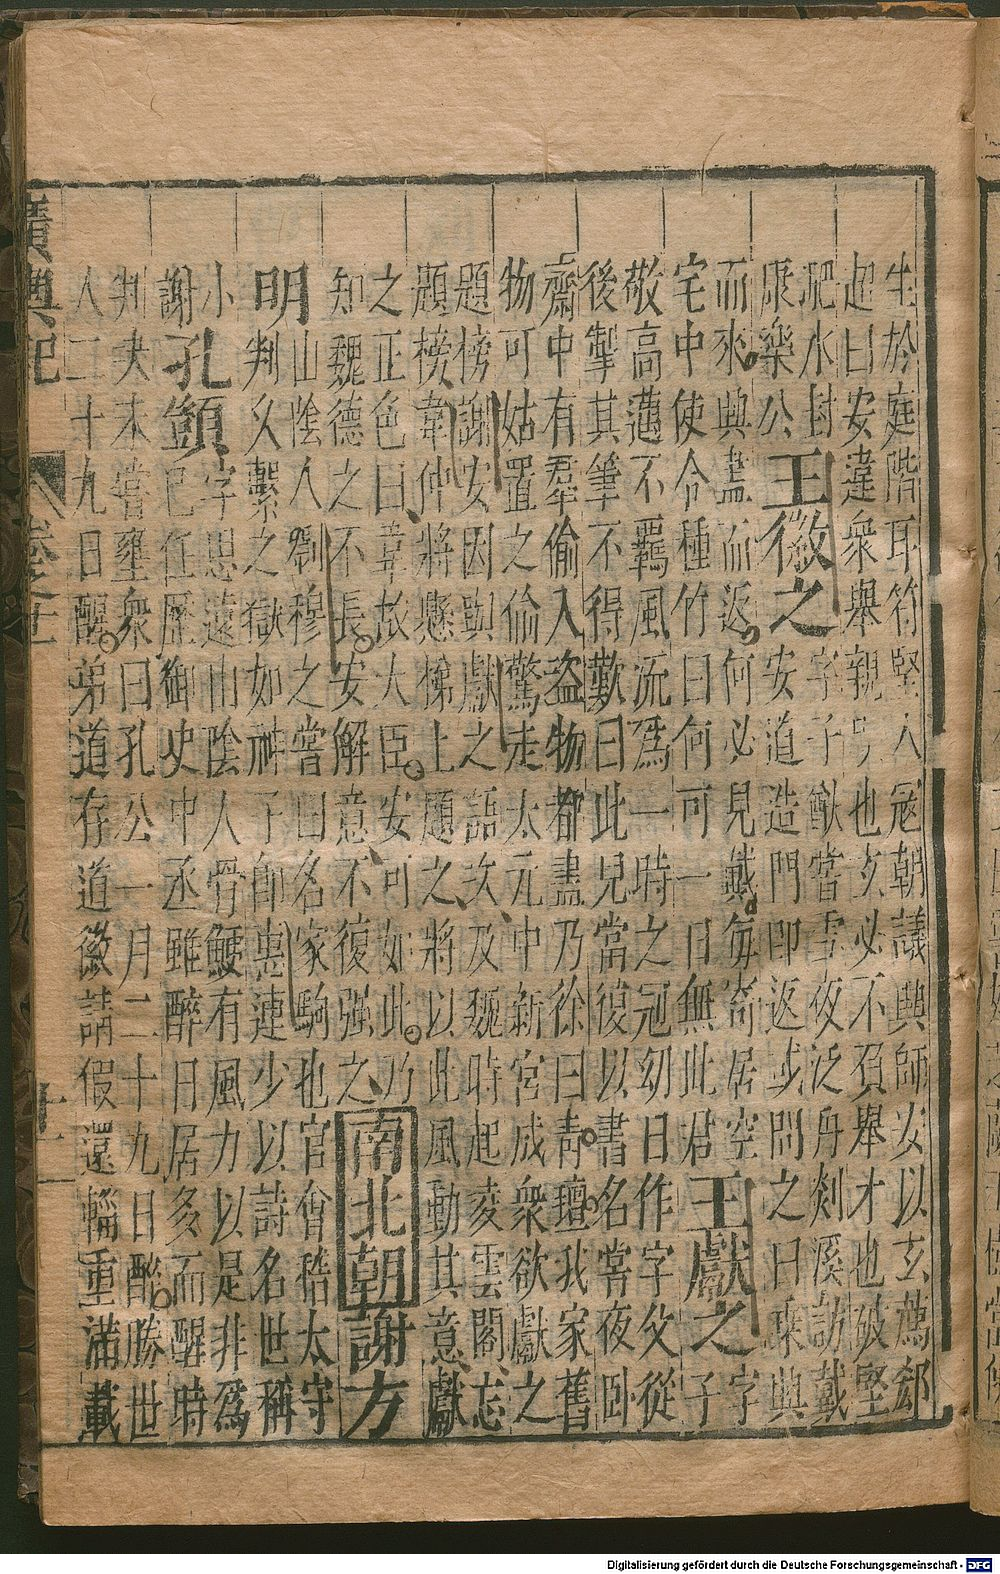 生於庭階耳符堅入冦朝議興師安以玄薦郄
超曰安違衆舉親明也玄必不負舉才也破堅
肥水封
康樂公
王徽之
字子猷嘗雪夜泛舟剡溪訪戴
安道造門即返或問之曰乗興
而來興盡而返何必見戴每寄居空
宅中使令種竹曰何可一日無此君
王獻之
字
子
敬高邁不羈風流爲一時之冠幼日作字父從
後掣其筆不得歎曰此兒當復以書名嘗夜卧
齋中有羣偷入盗物都盡乃徐曰青氊我家舊
物可姑置之偷驚走太元中新宮成衆欲獻之
題榜謝安因與獻之語次及魏時起夌雲閣忘
題榜韋仲將懸梯上題之將以此風動其意獻
之正色曰韋故大臣安可如此乃
知魏德之不長安解意不復強之
南北朝
謝方
明
山陰人劉穆之嘗曰名家駒也官會稽太守
判久繫之獄如神子卽惠連少以詩名世稱
小
謝
孔顗
字思遠山陰人骨鯁有風力以是非爲
己任歷御史中丞雖醉日居多而醒時
判决未嘗壅衆曰孔公一月二十九日醉勝世
人二十九日醒弟道存道徽請假還輜重滿載
廣輿記
卷之十
十一
Digitalisierung gefördert durch die Deutsche Forschungsgemeinschaft - DFG